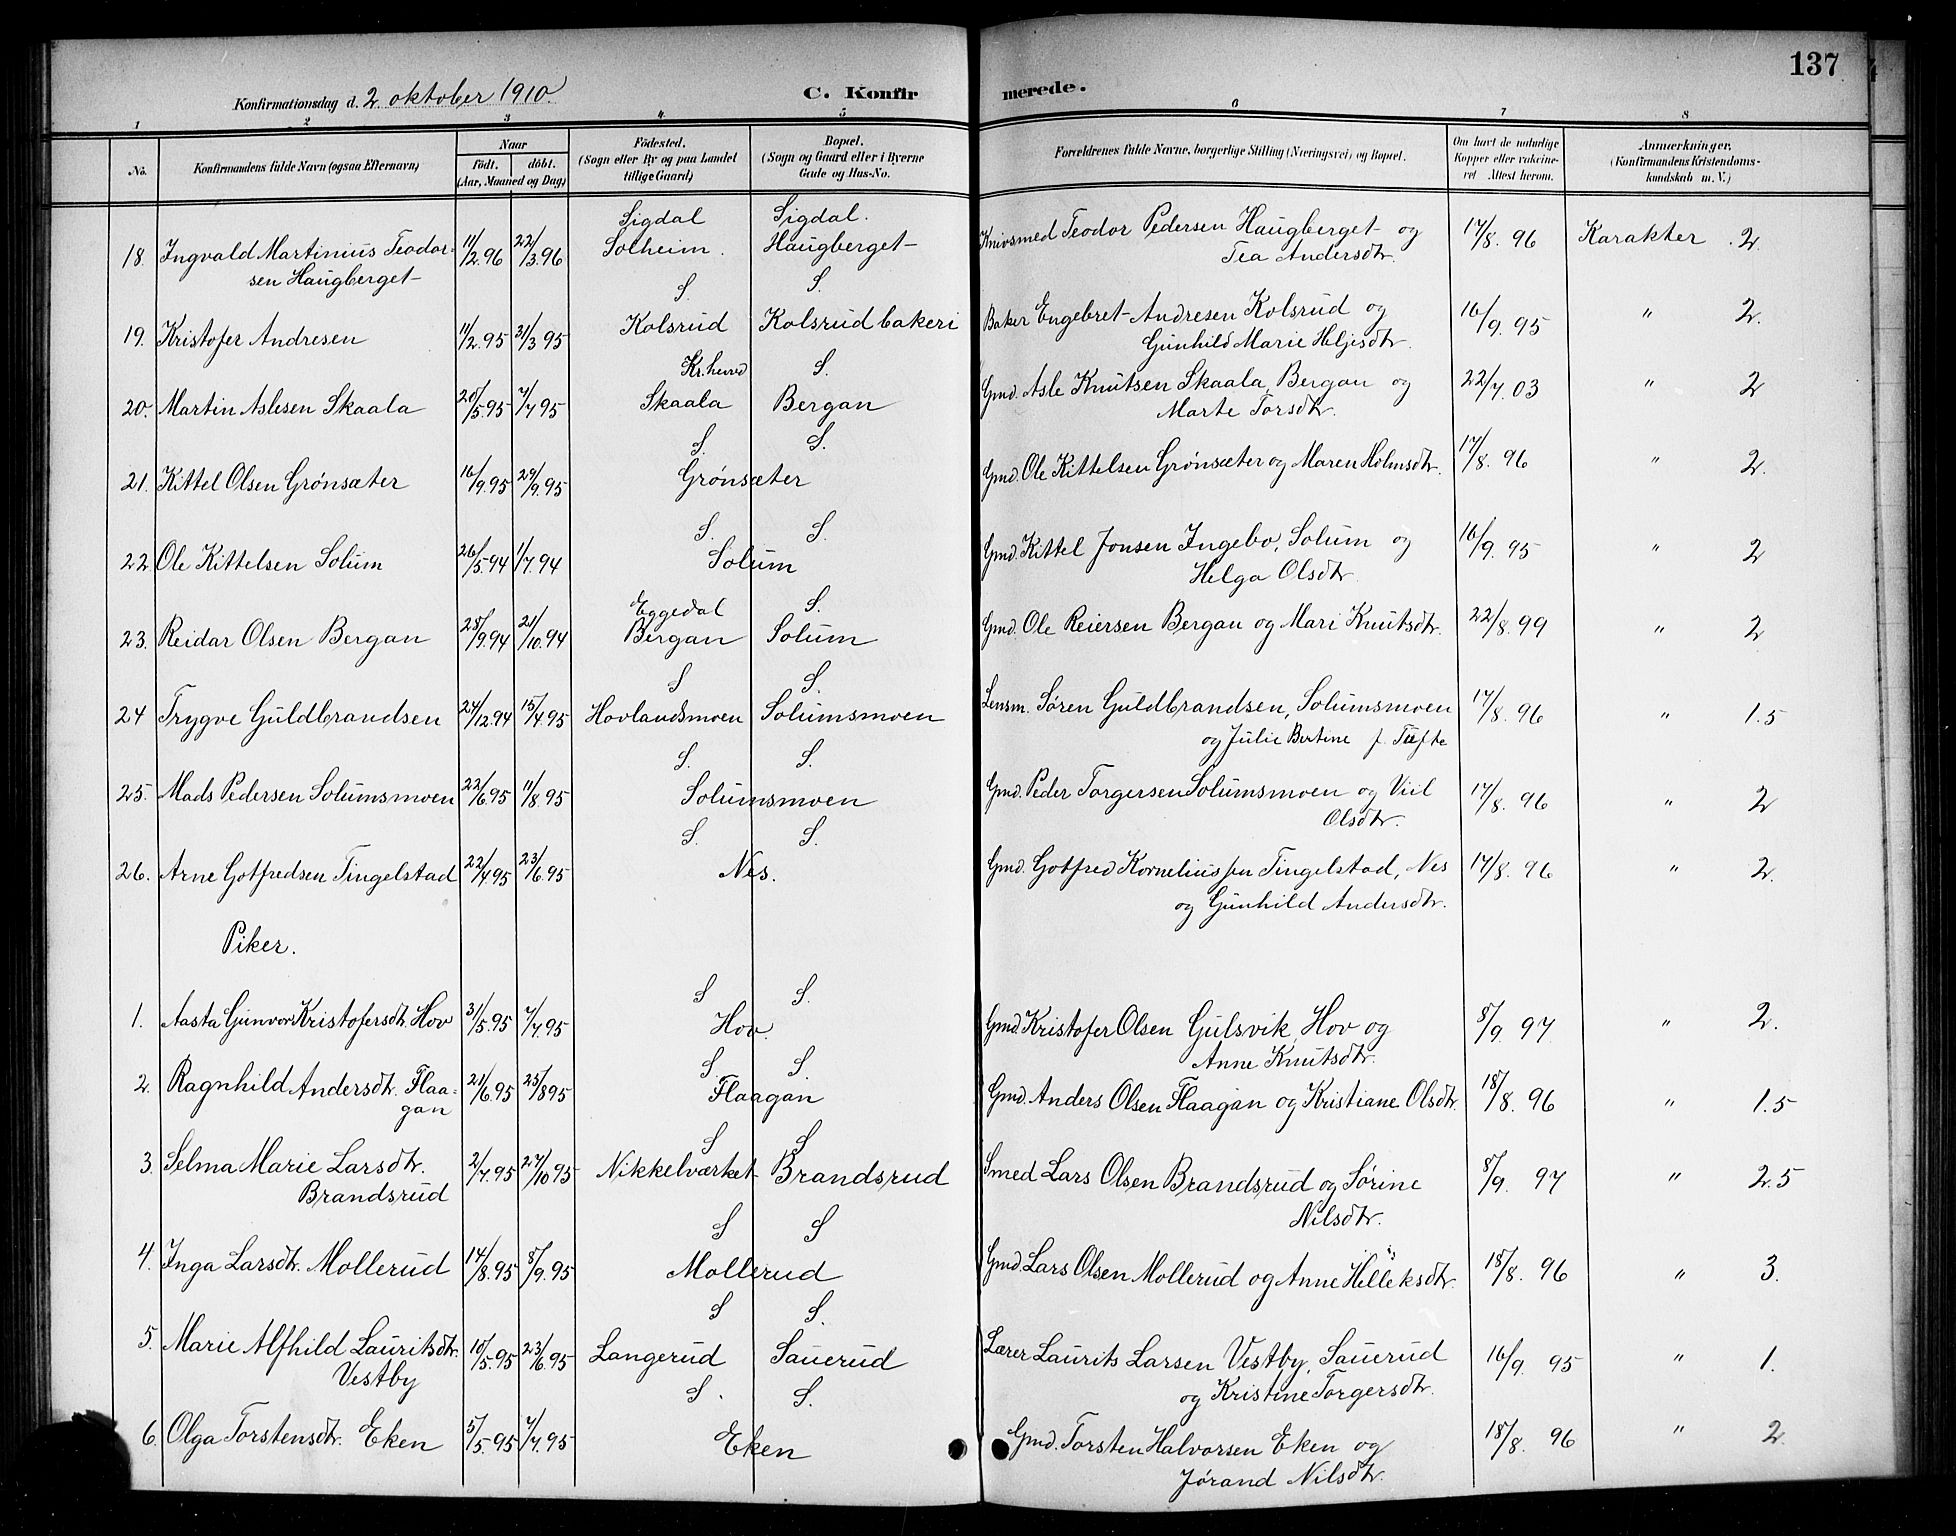 137
Konfirmationsdag d. 2. oktober 1910.
C. Konfirmerede.
1 2 3 4. 5 6 7 8
No. Konfirmandens fulde Navn (ogsaa Efternavn) Naar födt. döbt. (Aar, Maaned og Dag) Födested. (Sogn eller By og paa Landet tillige Gaard) Bopæl. (Sogn og Gaard eller i Byerne Gade og Hus-No. Forældrenes fulde Navne, borgerlige Stilling (Næringsvei) og Bopæl. Om havt de naturlige Kopper eller vaccineret Attest herom. Anmerkninger. (Konfirmandens Kristendomskundskab m. V.)
Sigdal Sigdal.
18. Ingvald Martinius Teodor- 11/2.96 22/3.96 Solheim. Haugberget Knivsmed Teodor Pedersen Haugberget og 17/8. 96 Karakter 2.
sen Haugberget Tea Andersdtr.
S. S.
19. Kristofer Andresen 11/2.95 31/3 95 Kolsrud Kolsrud bakeri Baker Engebret Andresen Kolsrud og 16/9. 95 " 2.
Gunhild Marie Heljesdtr.
Kr.herred S.
20. Martin Aslesen Skaala 20/5.95 7/7 95 Skaala Bergan Gmd. Asle Knutsen Skaala, Bergan og 22/7.03 " 2
Marte Torsdtr.
S. S.
21. Kittel Olsen Grønsæter 16/9.95 29/9.95 Grønsæter Gmd. Ole Kittelsen Grønsæter og Maren Holmsdtr. 17/8. 96 " 2.
S. S.
22. Ole Kittelsen Solum 26/5.94 1/7.94 Solum Gmd. Kittel Jonsen Ingebo, Solum og 16/9. 95 " 2
Helga Olsdtr.
Eggedal S.
23. Reidar Olsen Bergan 25/9.94 21/10.94 Bergan Solum Gmd. Ole Reiersen Bergan og Mari Knutsdtr. 22/8. 99 " 2
S S.
24 Trygve Guldbrandsen 24/12.94 15/4.95 Hovlandsmoen Solumsmoen Lensm. Søren Guldbrandsen, Solumsmoen 17/8. 96 " 1.5
og Julie Bertine f. Tufte
S. S.
25. Mads Pedersen Solumsmoen 22/6.95 11/8.95 Solumsmoen Gmd. Peder Torgersen Solumsmoen og Viil 17/8. 96 " 2
Olsdtr.
S. S.
26. Arne Gotfredsen Tingelstad 22/4.95 23/6.95 Nes. Gmd. Gotfred Korneliussen Tingelstad, Nes 17/8. 96 " 2.
og Gunhild Andersdtr.
Piker.
S S.
1. Aasta Gunvor Kristofersdtr. Hov 31/5.95 7/7.95 Hov. Gmd. Kristofer Olsen Gulsvik, Hov og 8/9. 97 " 2.
Anne Knutsdtr.
S. S.
2. Ragnhild Andersdtr. Flaa- 21/6.95 25/8 95 Flaagan Gmd. Anders Olsen Flaagan og Kristiane Olsdtr. 18/8. 96 " 1.5
gan
S S
3. Selma Marie Larsdtr. 2/7.95 27/10 95 Nikkelværket Brandsrud Smed Lars Olsen Brandsrud og Sørine 8/9. 97 " 2.5
Brandsrud Nilsdtr.
S S
4. Inga Larsdtr. Mollerud 14/8.95 8/9.95 Mollerud Gmd. Lars Olsen Mollerud og Anne Helleksdtr. 18/8. 96 " 3.
S S.
5. Marie Alfhild Lauritsdtr. 10/5.95 23/6.95 Langerud Sauerud Lærer Laurits Larsen Vestby, Sauerud 16/9. 95 " 1.
Vestby og Kristine Torgersdtr.
S. S.
6. Olga Torstensdtr. Eken 5/5.95 7/7.95 Eken Gmd. Torsten Halvorsen Eken og 18/8. 96 " 2.
Jørand Nilsdtr.